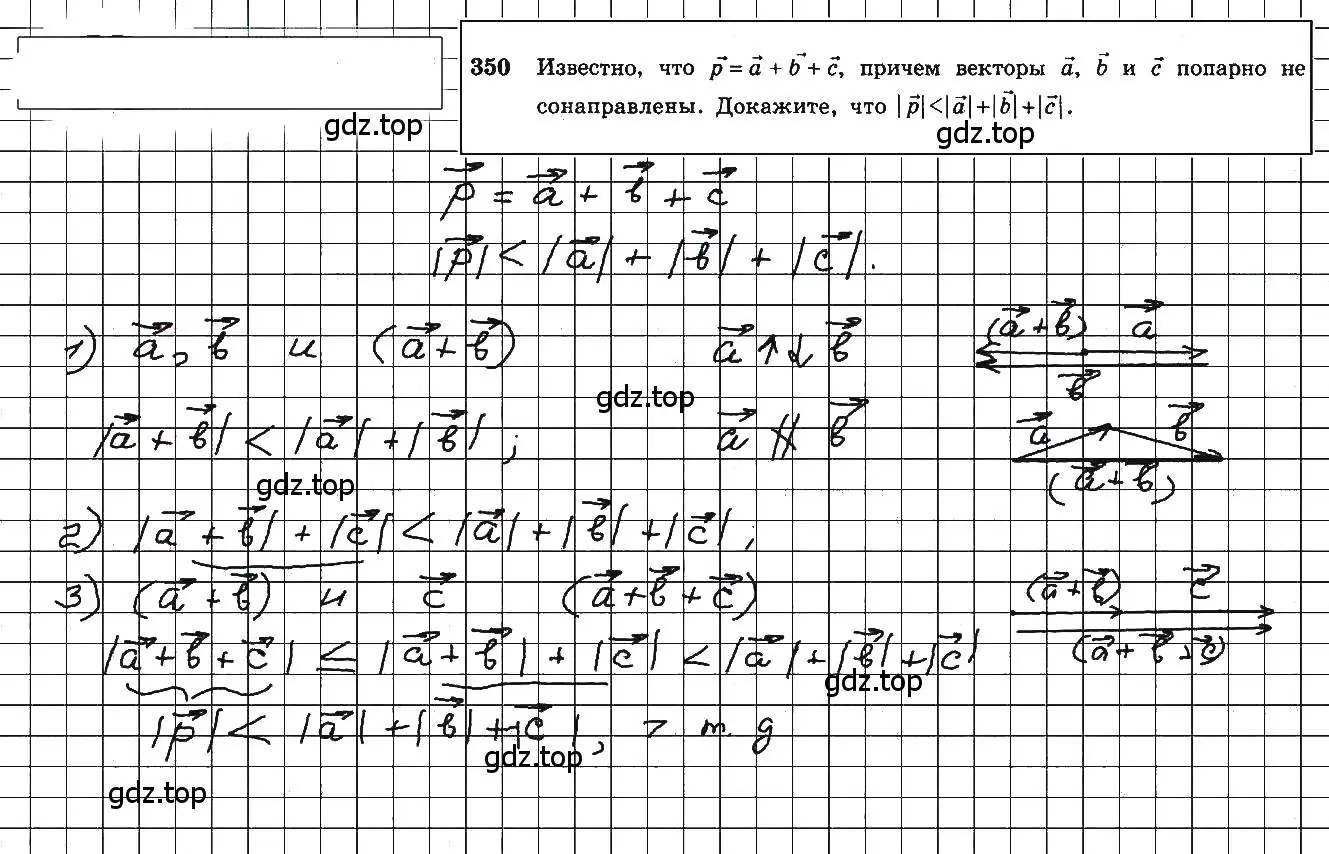 350 Известно, что p⃗ = a⃗ + b⃗ + c⃗, причем векторы a⃗, b⃗ и c⃗ попарно не
сонаправлены. Докажите, что |p⃗|<|a⃗|+|b⃗|+|c⃗|.
gdz.top
gdz.top
p⃗ = a⃗ + b⃗ + c⃗
|p⃗| < |a⃗| + |b⃗| + |c⃗|.
1) a⃗, b⃗ и (a⃗ + b⃗) a⃗ ↑↓ b⃗
(a⃗ + b⃗) a⃗
b⃗
gdz.top
|a⃗ + b⃗| < |a⃗| + |b⃗|; a⃗ ∦ b⃗
a⃗ b⃗
(a⃗ + b⃗)
gdz.top
2) |a⃗ + b⃗| + |c⃗| < |a⃗| + |b⃗| + |c⃗|;
3) (a⃗ + b⃗) и c⃗ (a⃗ + b⃗ + c⃗)
(a⃗ + b⃗) c⃗
(a⃗ + b⃗ + c⃗)
|a⃗ + b⃗ + c⃗| ≤ |a⃗ + b⃗| + |c⃗| < |a⃗| + |b⃗| + |c⃗|
gdz.top
|p⃗| < |a⃗| + |b⃗| + |c⃗|, ч т д
gdz.top
gdz.top